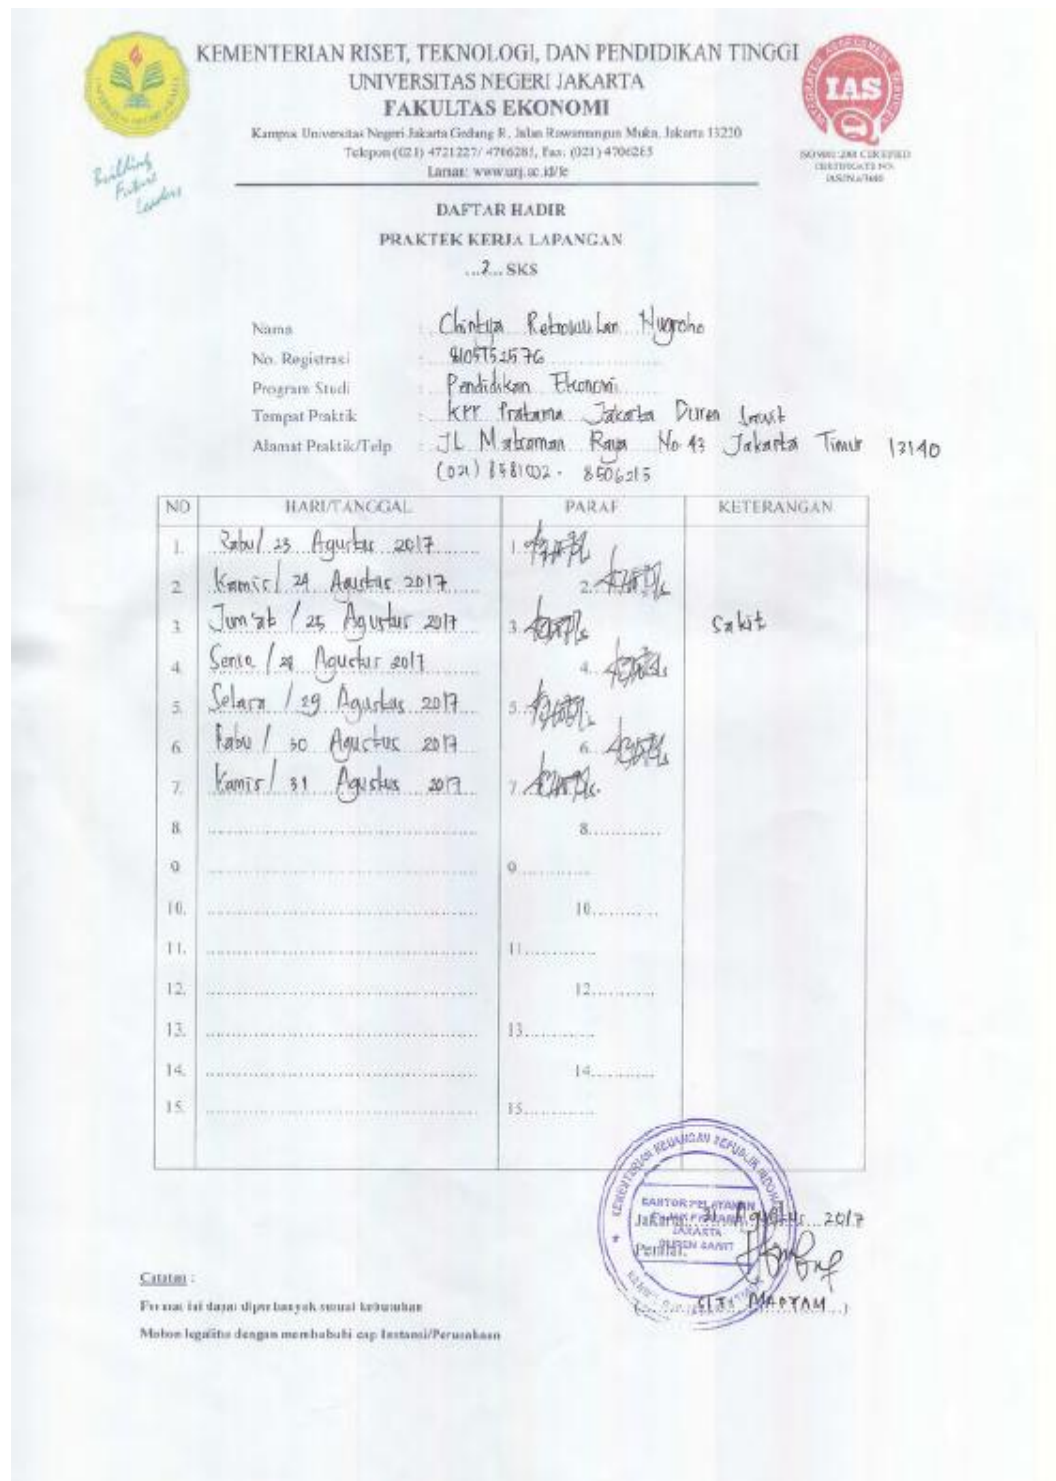 KEMENTERIAN RISET, TEKNOLOGI, DAN PENDIDIKAN TINGGI
UNIVERSITAS NEGERI JAKARTA
FAKULTAS EKONOMI
Kampus Universitas Negeri Jakarta Gedung R, Jalan Rawamangun Muka, Jakarta 13220
Telepon (021) 4721227/ 4706285, Fax: (021) 4706285
Laman: www.unj.ac.id/fe
Building
Future
Leaders
IAS
DAFTAR HADIR
PRAKTEK KERJA LAPANGAN
...2... SKS
Nama : Chintya Retnowulan Nugroho
No. Registrasi : 8105152576
Program Studi : Pendidikan Ekonomi
Tempat Praktik : KPP Pratama Jakarta Duren Sawit
Alamat Praktik/Telp : JL Matraman Raya No 43 Jakarta Timur 13140
(021) 8581002 - 8506215
NO HARI/TANGGAL PARAF KETERANGAN
1. Rabu/ 23 Agustus 2017 1.
2. Kamis/ 24 Agustus 2017 2.
3. Jum'at / 25 Agustus 2017 3. Sakit
4. Senin / 28 Agustus 2017 4.
5. Selasa / 29 Agustus 2017 5.
6. Rabu / 30 Agustus 2017 6.
7. Kamis/ 31 Agustus 2017 7.
8. 8.
9 9
10. 10.
11. 11.
12. 12.
13. 13.
14. 14.
15. 15.
KEMENTERIAN KEUANGAN REPUBLIK INDONESIA
KANTOR PELAYANAN
PAJAK PRATAMA
JAKARTA
DUREN SAWIT
Jakarta, 31 Agustus 2017
Penilai,
(SITI MARYAM)
Catatan :
Format ini dapat diperbanyak sesuai kebutuhan
Mohon legalitas dengan membubuhi cap Instansi/Perusahaan